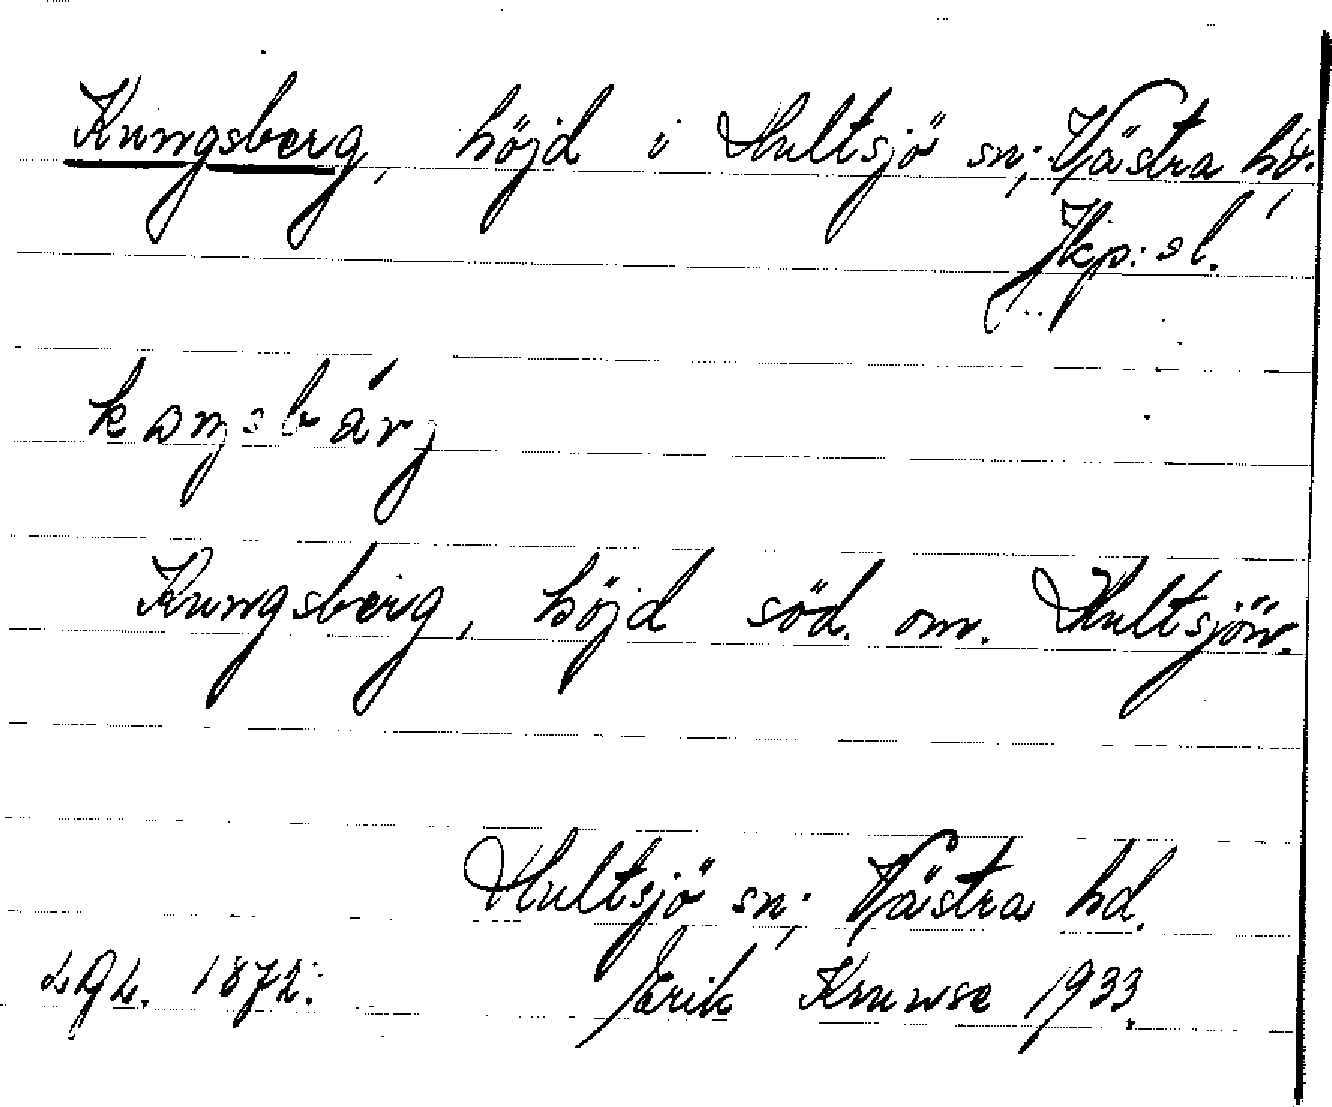 Kungsberg, höjd i Hultsjö sn; Västra hd.
Jkp:s l.
Kungsberg, höjd söd. om. Hultsjön.
Hultsjö sn; Västra hd.
1872. Erik Kruuse 1933.